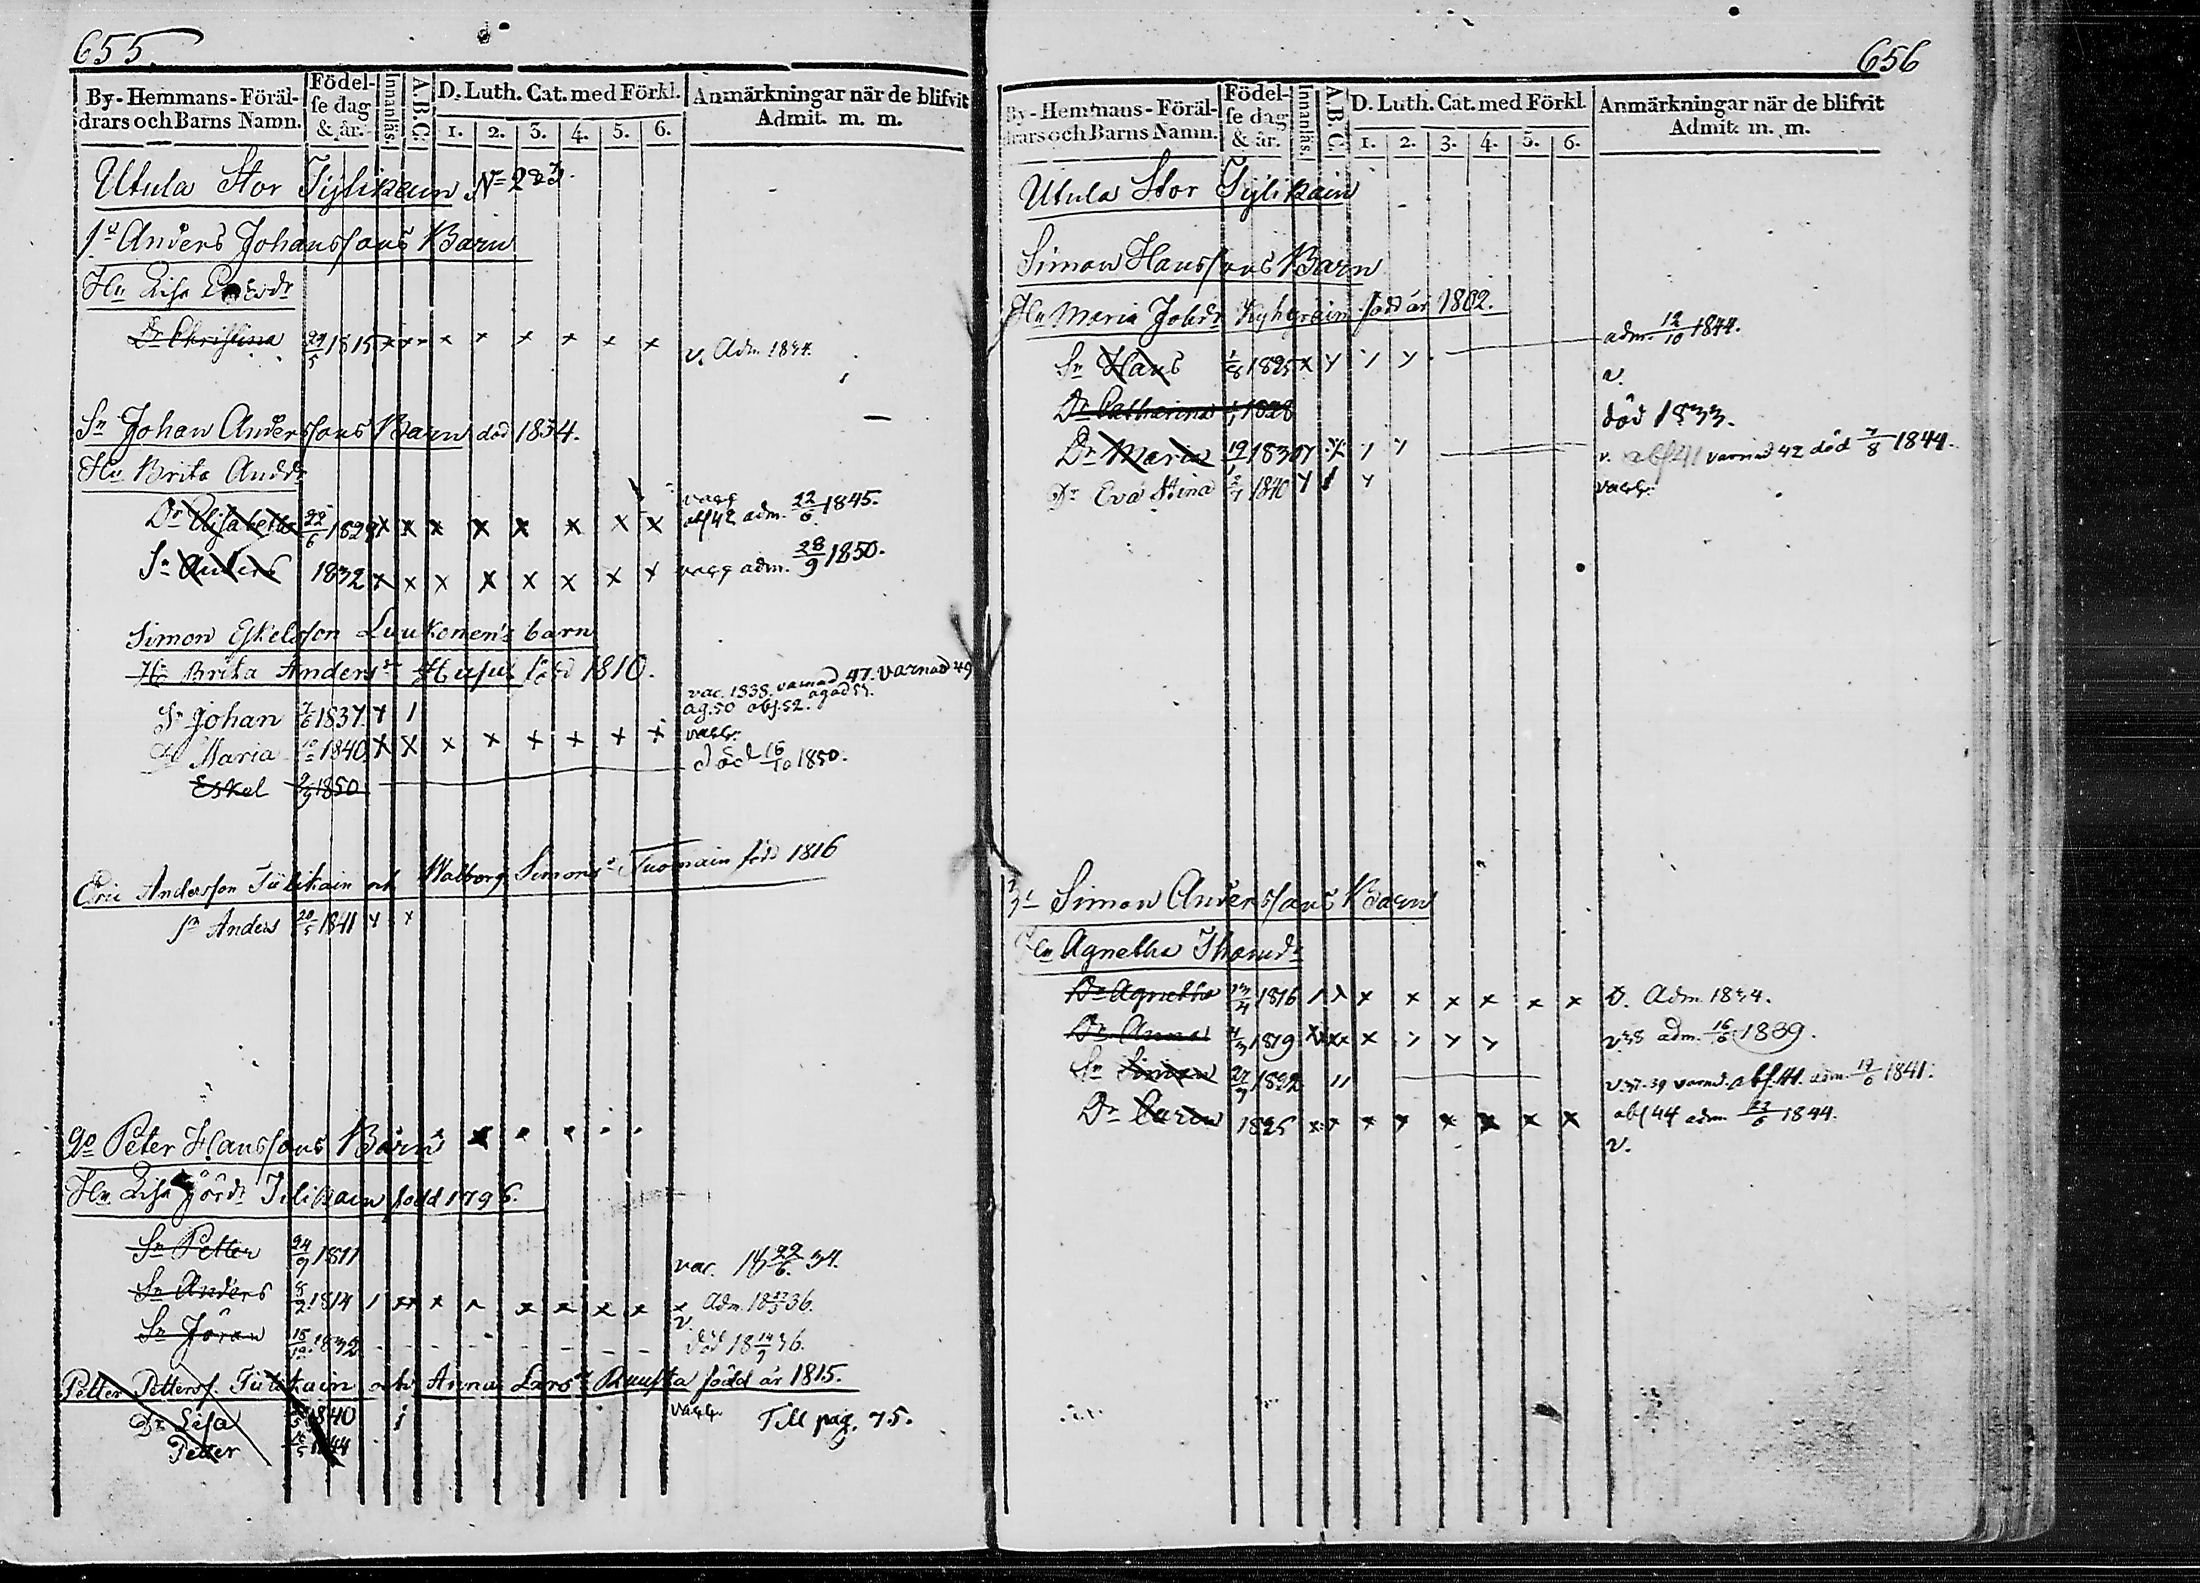 655.
By-Hemmans-Föräl-
drars och Barns Namn.
Födel-
se dag
& år.
Innanläs.
A.B.C.
D. Luth. Cat. med Förkl.
1. 2. 3. 4. 5. 6.
Anmärkningar när de blifvit
Admit. m. m.
Utula Stor Tylikain No 283.
1o Anders Johanssons Barn
Hu Lisa
Dr Christina 24/5 1815 x x x x x x x x v. Adm. 1834.
Sn Johan Anderssons Barn död 1834.
Hu Brita Andrdr
vacc
Dr Elisabetha 22/6 1829 x x x x x x x x abs 42 adm. 22/6 1845.
Sn Anders 1832 x x x x x x x x vacc adm. 28/9 1850.
Simon Eskelsson Luukonen's barn
Hu Brita Andersdr Husu född 1810.
vac. 1838. varnad 47. varnad 49
Sn Johan 7/6 1837 x 1 ag. 50 abs. 52. agad 53.
Dr Maria 1840 x x x x x x x x vacc.
Eskel 2/9 1850 död 16/10 1850.
Eric Andersson Tülikain och Walborg Simonsdr Tuomain född 1816
Sn Anders 20/5 1841 x x
2o Peter Hanssons Barn
Hu Lisa Jördr Tilikain född 1796.
Sn Petter 24/9 1811 vac. 18 22/6 34.
Sn Anders 8/2 1814 1 x x x x x x x x Adm. 18 36.
v.
Sn Jöran 18/12 1832 - - - - - - död 18 14/9 36.
Petter Petterss. Tülikain och Anna Larsdr Ruuska född år 1815.
Dr Lisa 1840 1 vacc. Till pag. 75.
Petter 1844
656
By-Hemmans-Föräl-
drars och Barns Namn.
Födel-
se dag
& år.
Innanläs.
A.B.C.
D. Luth. Cat. med Förkl.
1. 2. 3. 4. 5. 6.
Anmärkningar när de blifvit
Admit. m. m.
Utula Stor Tylikain
Simon Hanssons Barn
Hu Maria Johdr Kyhyräin född år 1802.
adm. 12/10 1844.
Sn Hans 1/8 1825 x y y y v.
Dr Catharina 1828 död 1833.
Dr Maria 1830 v. abs 41 varnad 42 död 7/8 1844.
Dr Eva Stina 1840 vacc.
3o Simon Anderssons Barn
Hu Agnetha Thomdr
Dr Agnetha 23/4 1816 x x x x x x x x v. Adm. 1834.
Dr Anna 4/3 1819 v. 38 adm. 16/6 1839.
Sn Simon 27/9 1822 v. 37. 39 varnd. abs. 41. adm. 17/6 1841.
Dr Carin 1825 x x x x x x x x abs 44 adm 23/6 1844.
v.